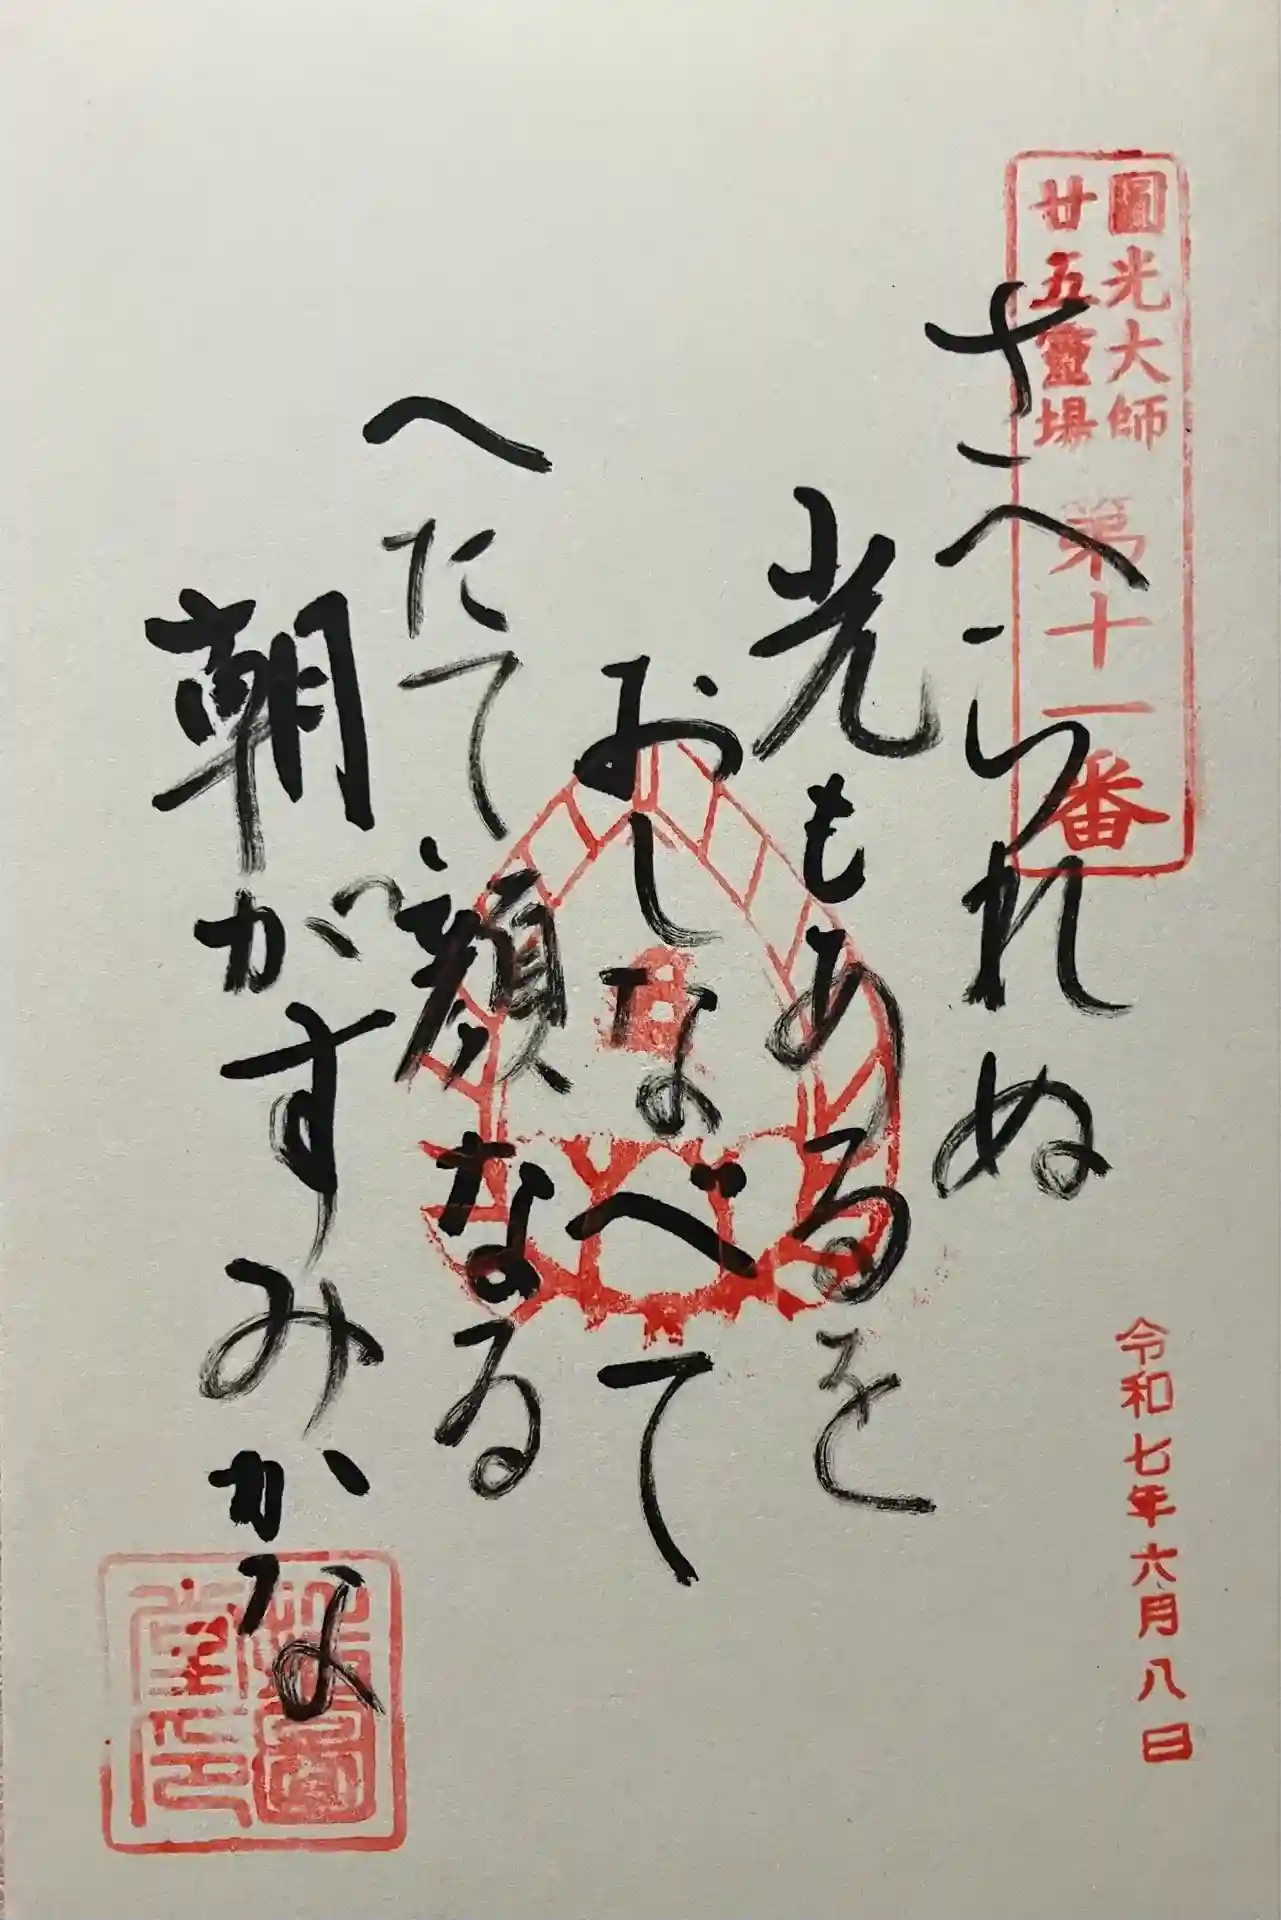 圓光大師
廿五霊場
第十一番
さへられぬ
光もあるを
おしなべて
へだて顔なる
朝がすみかな
令和七年六月八日